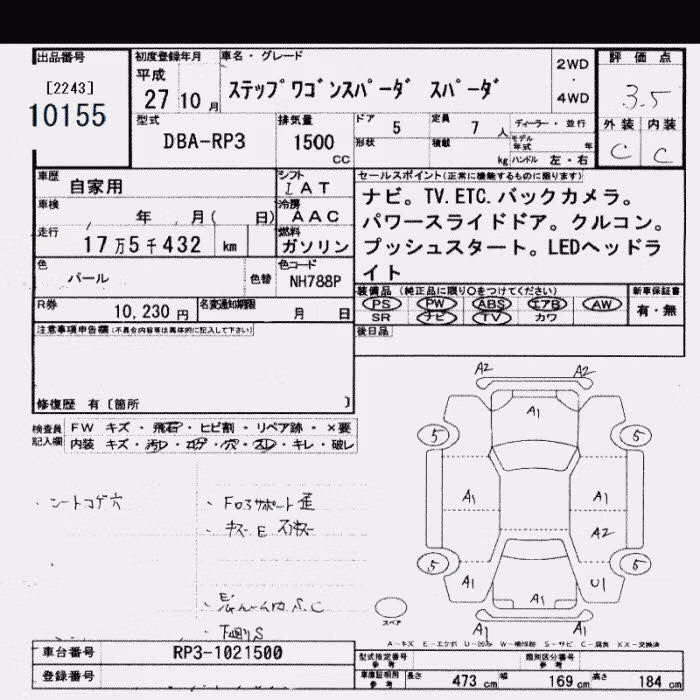 出品番号
[2243]
10155
初度登録年月
平成
27 10 月
車名・グレード
ステップワゴンスパーダ スパーダ
2WD
・
4WD
評価点
3.5
外装 内装
C C
型式
DBA-RP3
排気量
1500
CC
ドア 5
定員 7 人
形状
積載 kg
ディーラー・並行
モデル年式 年
ハンドル 左・右
車歴
自家用
シフト
I AT
車検
年 月( 日)
冷房
AAC
走行
17万5千432 km
燃料
ガソリン
色
パール
色替
色コード
NH788P
R券
10,230 円
名変通知期限
月 日
セールスポイント(正常に機能するものに限ります)
ナビ。TV.ETC.バックカメラ。
パワースライドドア。クルコン。
プッシュスタート。LEDヘッドラ
イト
装備品 (純正品に限り○をつけてください)
PS PW ABS エアB AW
SR ナビ TV カワ
新車保証書
有・無
後日品
注意事項申告欄(不具合内容等は具体的に記入して下さい)
修復歴 有〔箇所 〕
検査員
記入欄
FW キズ・飛石・ヒビ割・リペア跡・×要
内装 キズ・汚レ・コゲ・穴・スレ・キレ・破レ
・シートコゲ穴
・Fロアサポート歪
・下廻りS
A2 A2
A1
5 5
A1 A1
A2
5 5
A1 U1
A1
A1 A1
スペア
A-キズ E-エクボ U-凹み W-補修跡 S-サビ C-腐食 XX-交換済
車台番号
RP3-1021500
登録番号
型式指定番号
参考
類別区分番号
参考
車庫証明用
参考
長さ 473 cm 幅 169 cm 高さ 184 cm